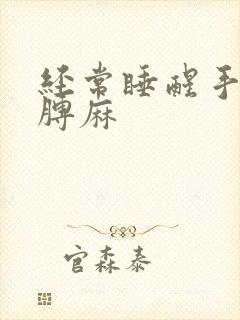 经常睡醒手
膊麻
官森泰